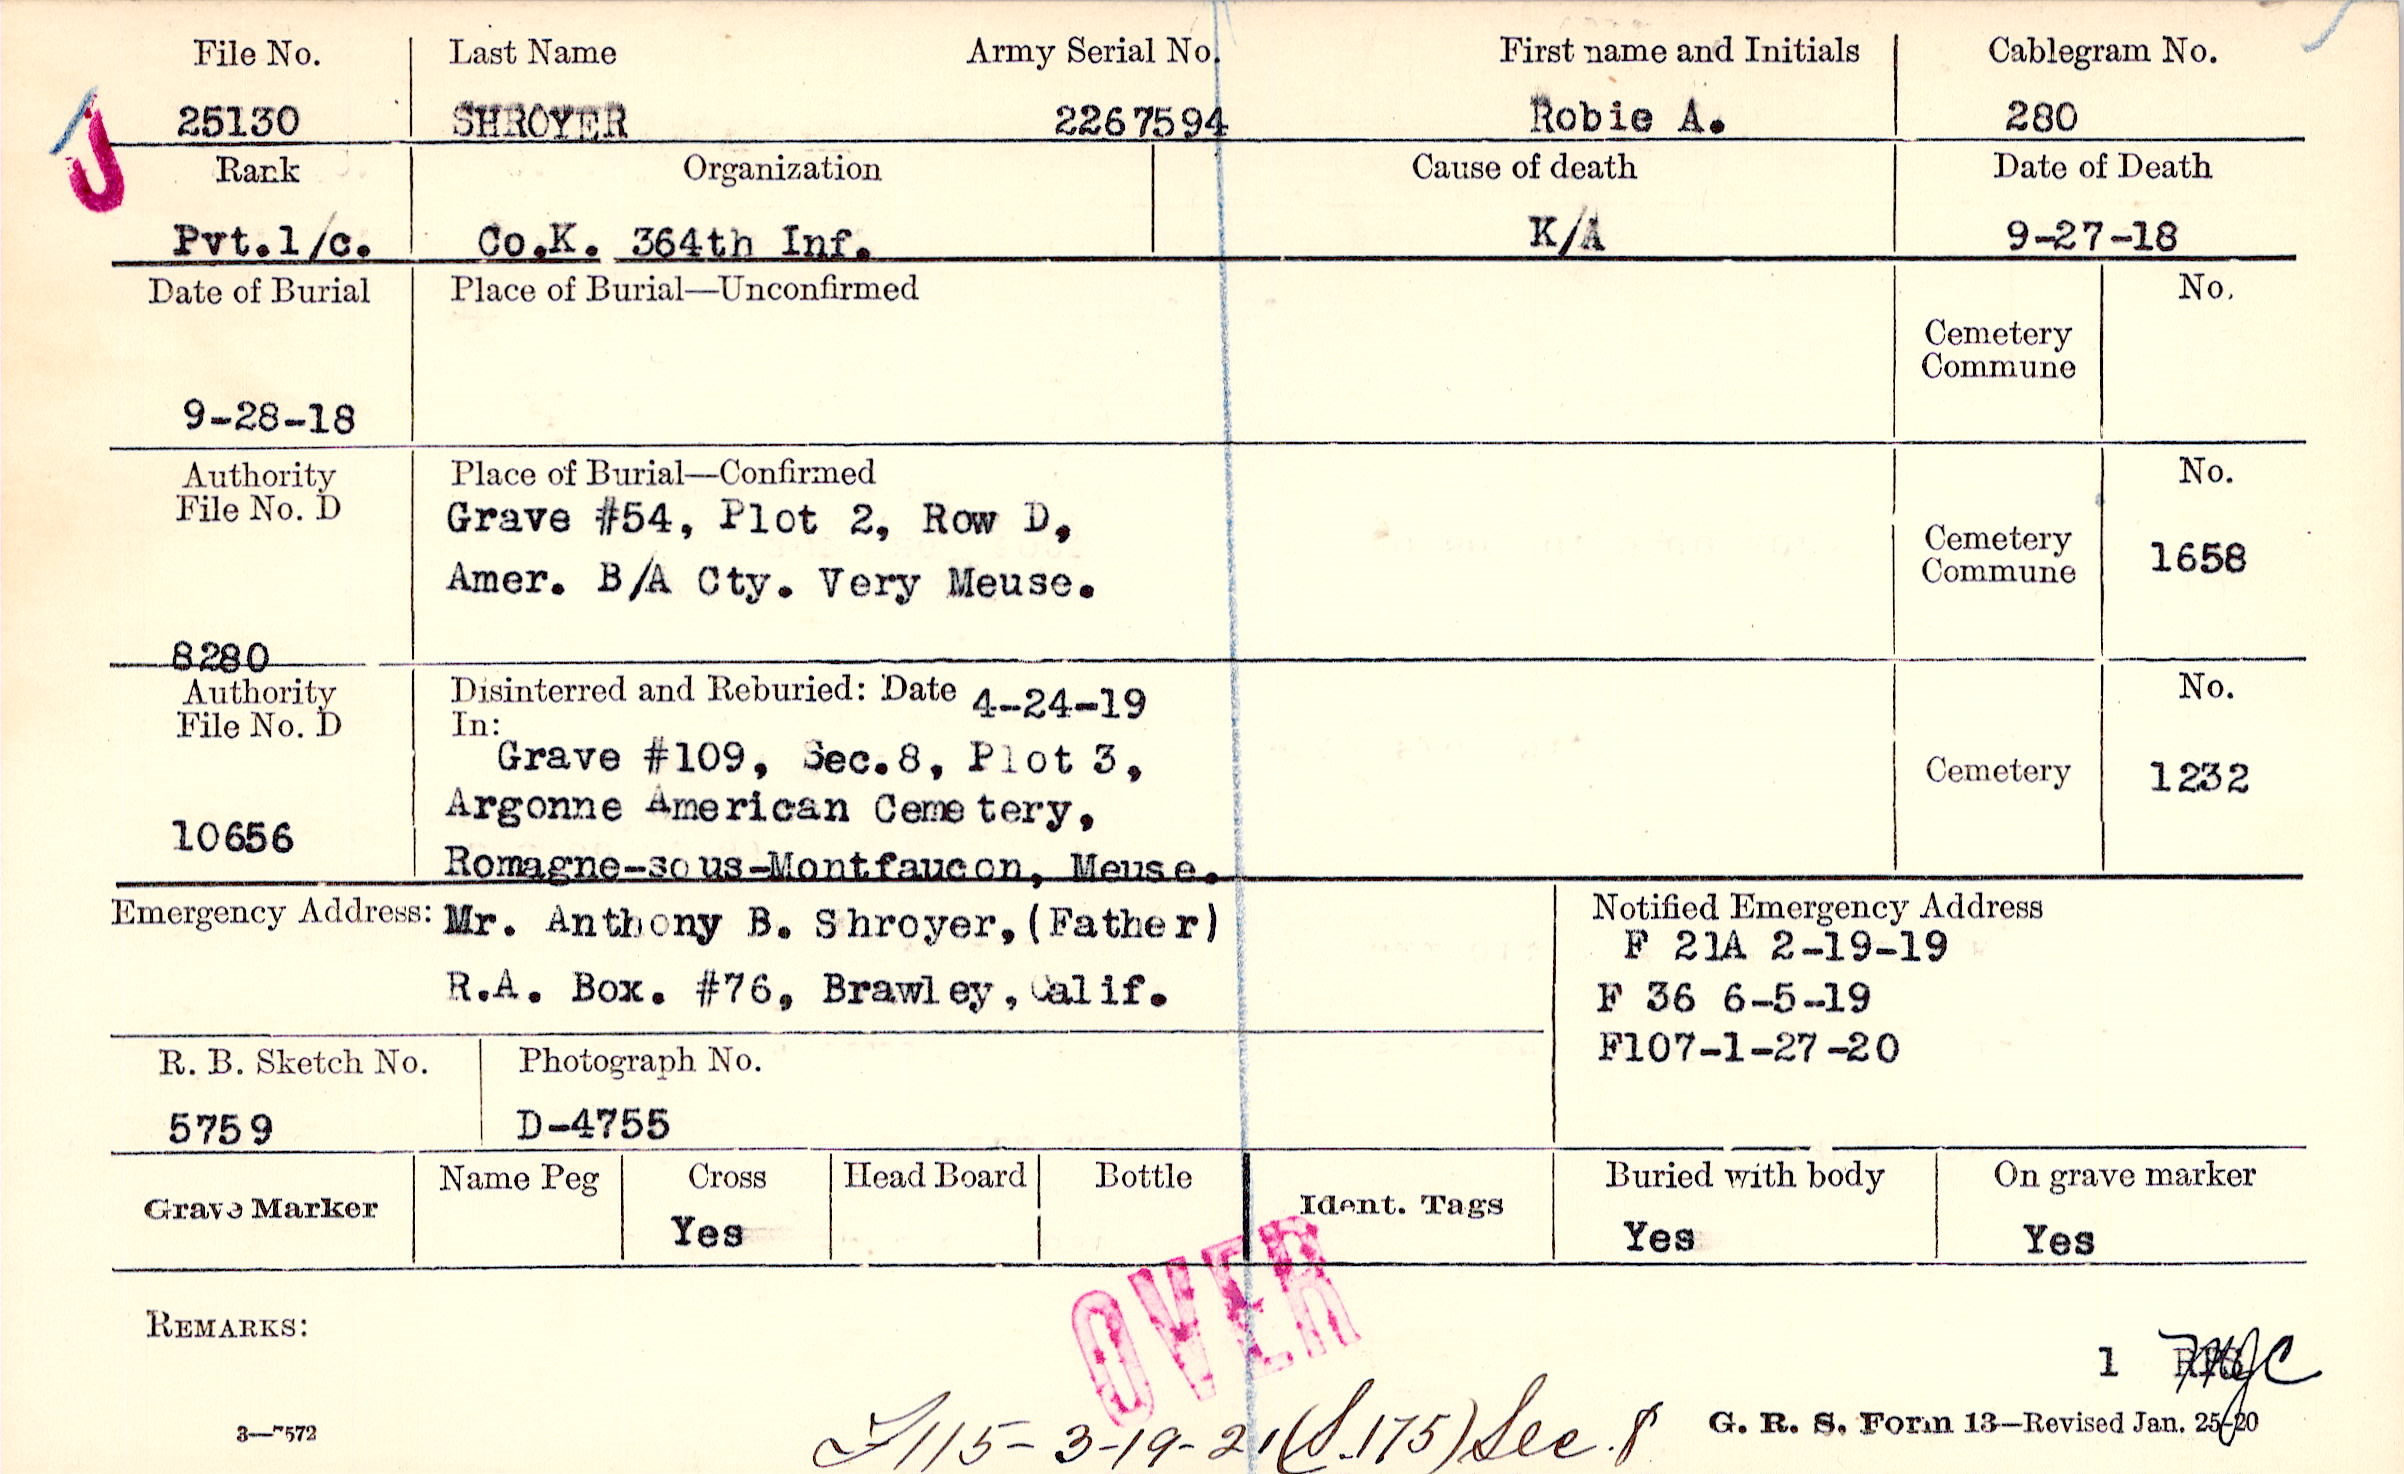 File No. Last Name Army Serial No. First name and Initials Cablegram No.
J 25130 SHROYER 2267594 Robie A. 280
Rank Organization Cause of death Date of Death
Pvt.1/c. Co.K. 364th Inf. K/A 9-27-18
Date of Burial Place of Burial—Unconfirmed No.
Cemetery
Commune
9-28-18
Authority Place of Burial—Confirmed No.
File No. D Grave #54, Plot 2, Row D,
Cemetery
Commune 1658
Amer. B/A Cty. Very Meuse.
8280
Authority Disinterred and Reburied: Date 4-24-19 No.
File No. D In:
Grave #109, Sec.8, Plot 3,
Cemetery 1232
Argonne American Cemetery,
10656
Romagne-sous-Montfaucon, Meuse.
Emergency Address: Mr. Anthony B. Shroyer,(Father) Notified Emergency Address
F 21A 2-19-19
R.A. Box. #76, Brawley, Calif. F 36 6-5-19
F107-1-27-20
R. B. Sketch No. Photograph No.
5759 D-4755
Grave Marker Name Peg Cross Head Board Bottle Ident. Tags Buried with body On grave marker
Yes Yes Yes
OVER
REMARKS:
1
F115-3-19-21(S.175)Sec.8
3—7572 G. R. S. Form 13—Revised Jan. 25-20